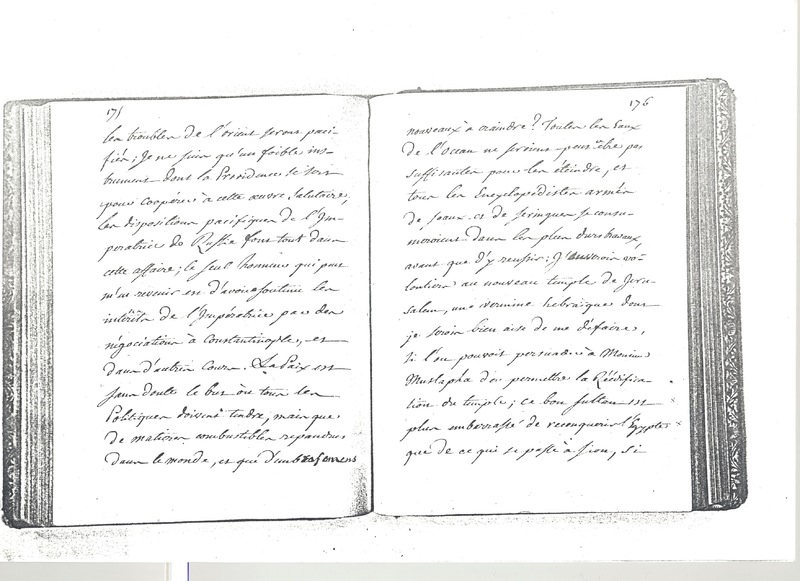 175
les troubles de l'orient seront paci-
fiés; Je ne suis qu'un foible ins-
trument dont la Providence se sert
pour Coopérer à cette œuvre Salutaire,
les dispositions pacifiques de l'Im-
pératrice de Russie font tout dans
cette affaire; le seul honneur qui peut
m'en revenir est d'avoir soutenu les
intérêts de l'Impératrice par des
négociations à Constantinople, et
dans d'autres Cours. La Paix est
sans doute le but où tous les
Politiques doivent tendre, mais que
de matieres combustibles repandues
dans le monde, et que d'embrasemens
176
nouveaux à craindre? Toutes les Eaux
de l'Ocean ne seroient peut-être pas
suffisantes pour les éteindre, et
tous les Encyclopédistes armés
de seaux et de seringues se consu-
meroient dans les plus durs travaux,
avant que d'y reussir; J'enverrois vo-
lontiers au nouveau temple de Jeru-
salem, une vermine hebraïque dont
je serois bien aise de me défaire,
si l'on pouvoit persuader à Monsieur
Mustapha d'en permettre la Réédifica-
tion du temple; ce bon sultan est
plus embarrassé de reconquerir l'Egypte
que de ce qui se passe à Sion, si